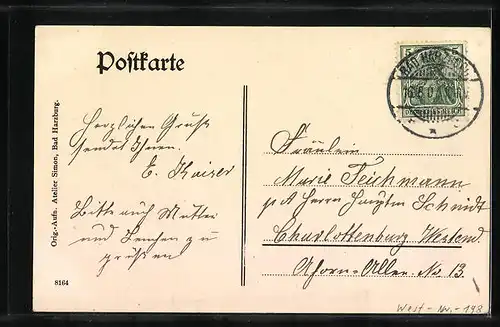 Postkarte
5 5
BAD HARZBURG
Herzlichen Gruß
sendet Ihnen
E. Kaiser
Bitte auch Mutter
und Lenchen zu
grüßen
Fräulein
Marie Teichmann
p A Herrn Hauptm Schmidt
Charlottenburg Westend
Ahorn-Allee No 13
Orig.-Aufn. Atelier Simon, Bad Harzburg.
8164
West-Nr.-198